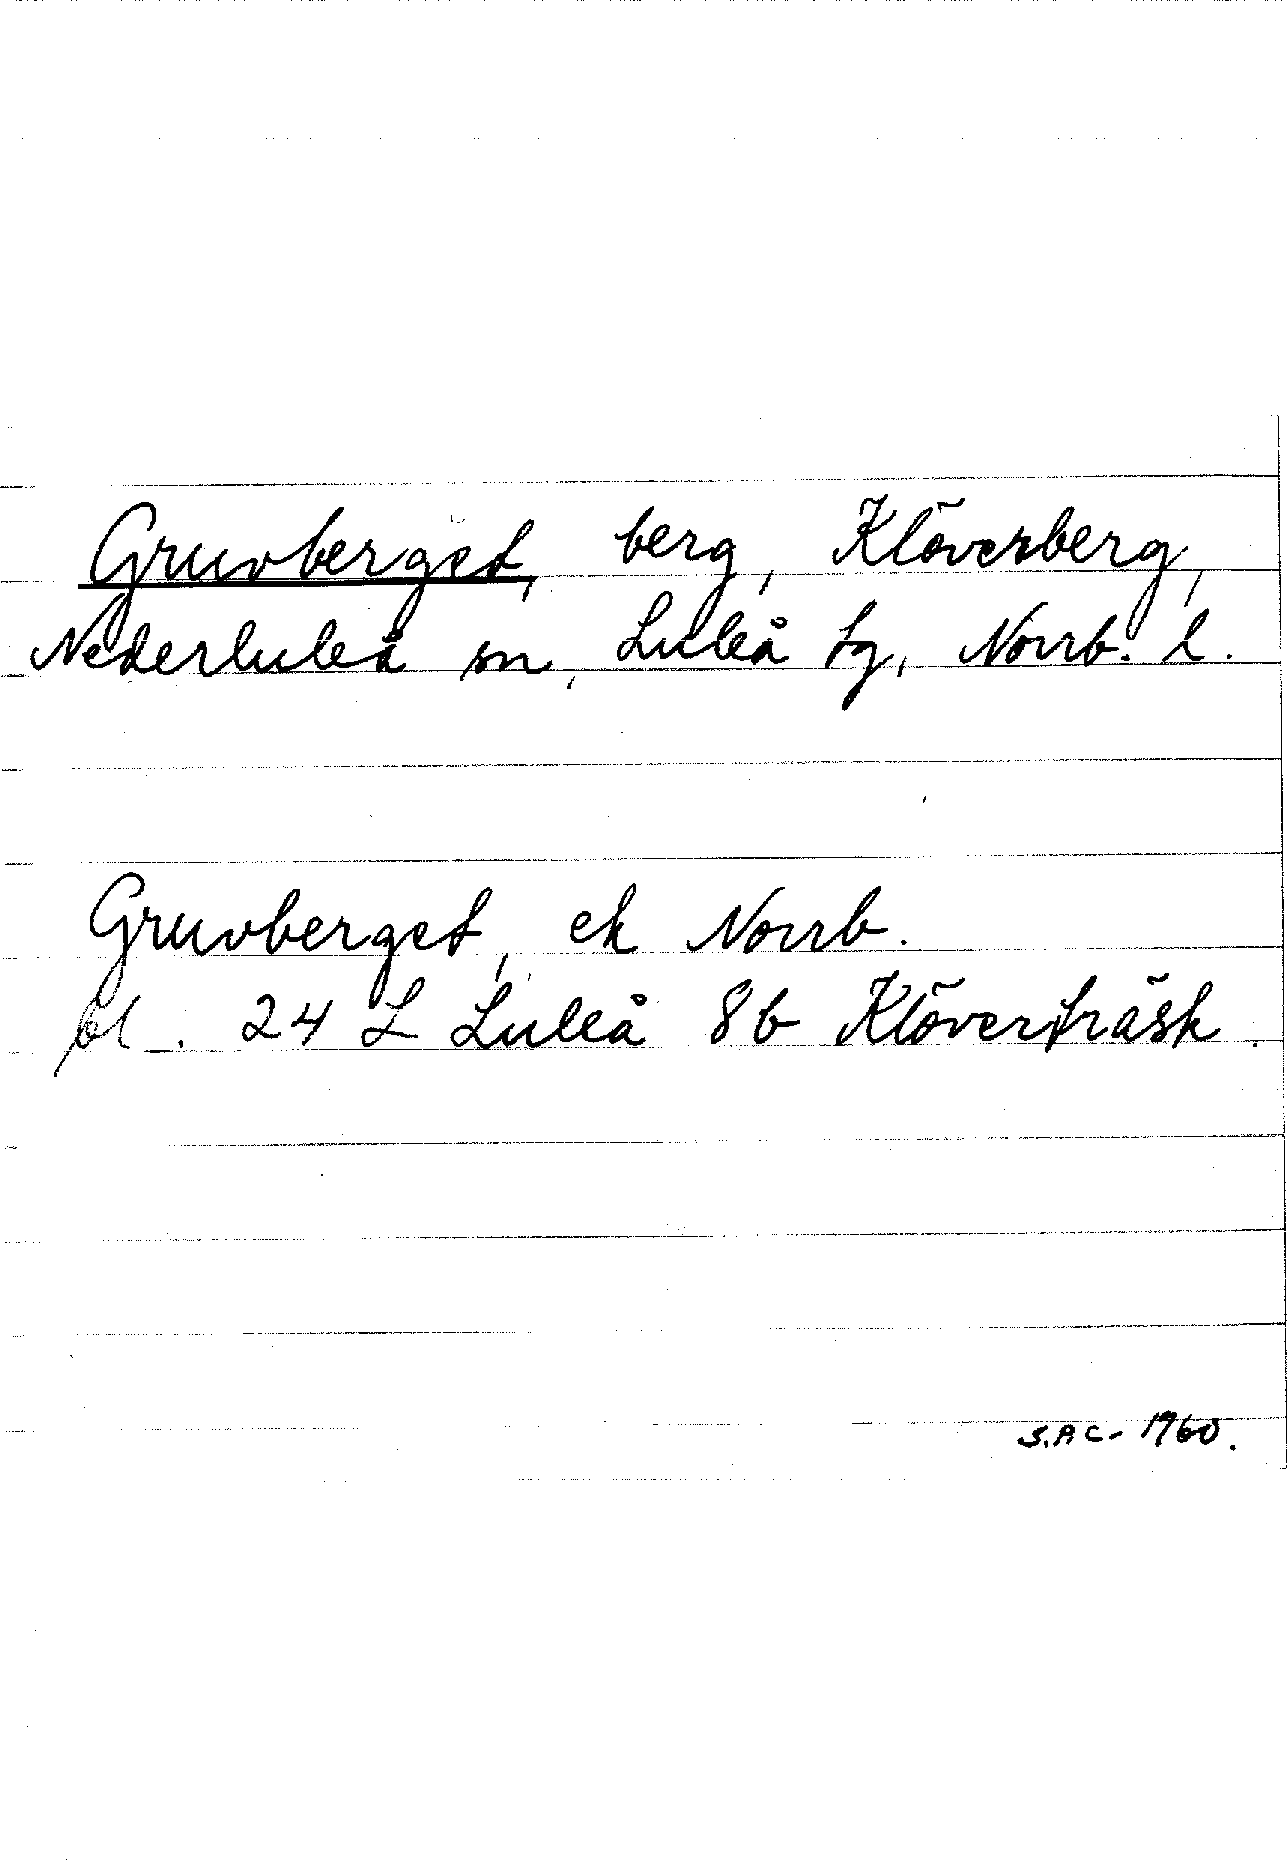 Gruvberget, berg, Klöverberg,
Nederluleå sn, Luleå tg, Norrb. l.
Gruvberget, ek Norrb.
bl. 24 L Luleå 8b Klöverträsk.
S.A C- 1960.